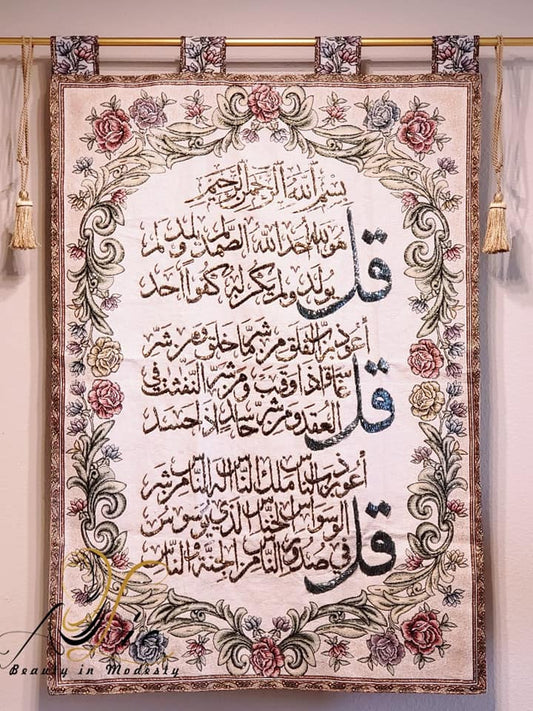 بسم الله الرحمن الرحيم
قل هو الله أحد الله الصمد لم يلد ولم
يولد ولم يكن له كفوا أحد
قل أعوذ برب الفلق من شر ما خلق ومن شر
غاسق إذا وقب ومن شر النفثت في
العقد ومن شر حاسد إذا حسد
قل أعوذ برب الناس ملك الناس إله الناس من شر
الوسواس الخناس الذي يوسوس
في صدور الناس من الجنة والناس
Beauty in Modesty